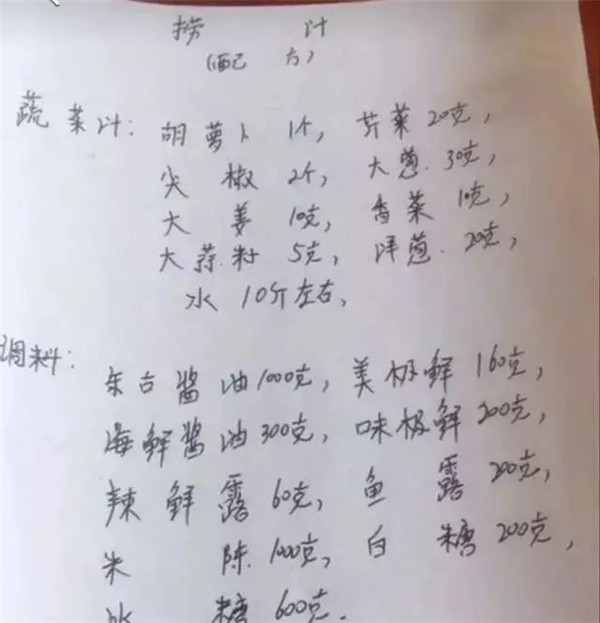 捞汁
(配方)
蔬菜汁: 胡萝卜1个, 芹菜20克,
尖椒2个, 大葱.30克,
大姜10克, 香菜10克,
大蒜籽5克, 洋葱.20克,
水10斤左右,
调料: 东古酱油1000克, 美极鲜160克,
海鲜酱油300克, 味极鲜200克,
辣鲜露60克, 鱼露200克,
朱陈1000克, 白糖200克,
冰糖600克.